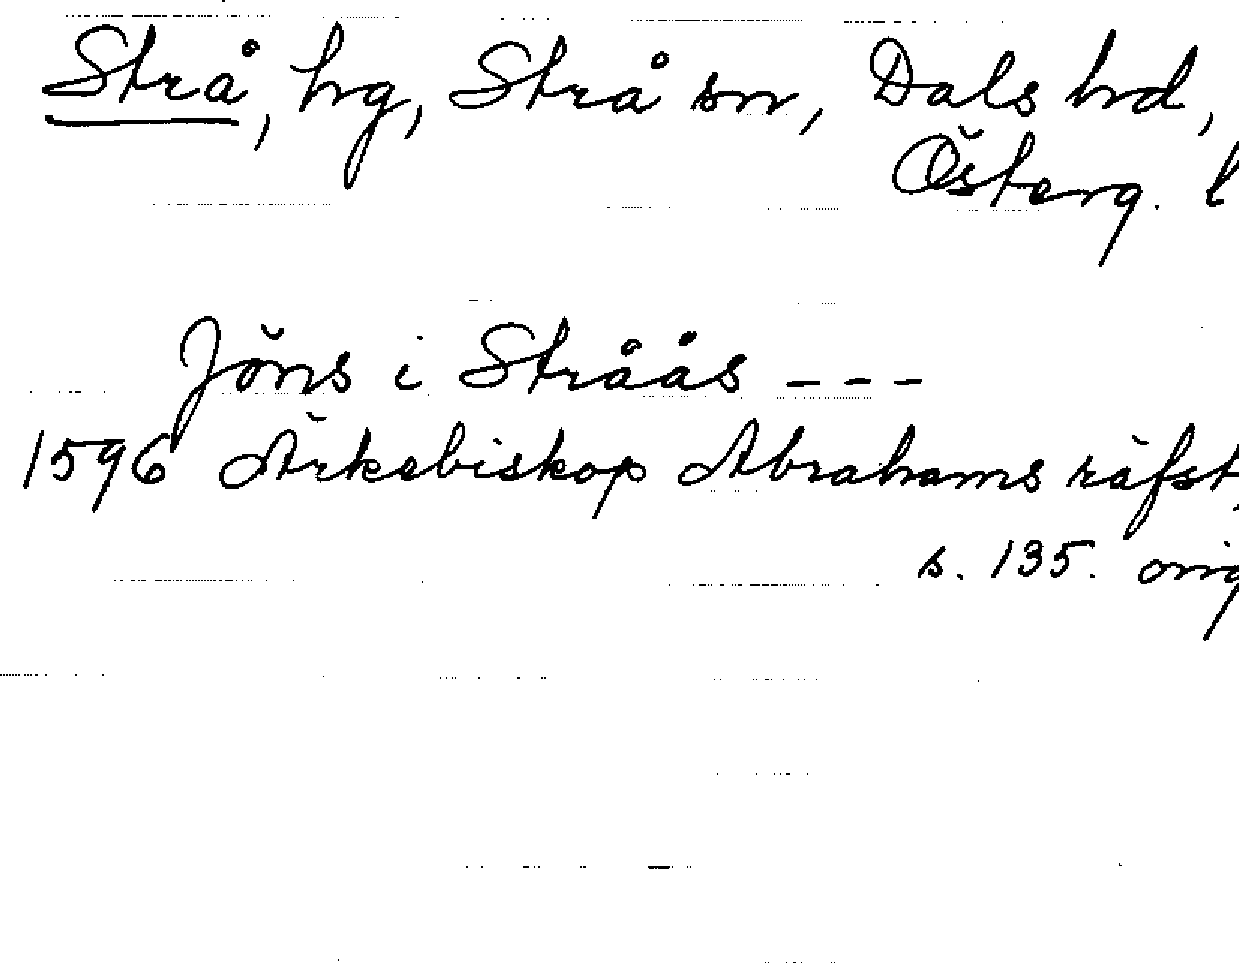 Strå, hg, Strå sn, Dals hd,
Österg. l
Jöns i Stråås - - -
1596 Ärkebiskop Abrahams räfst,
s. 135. orig